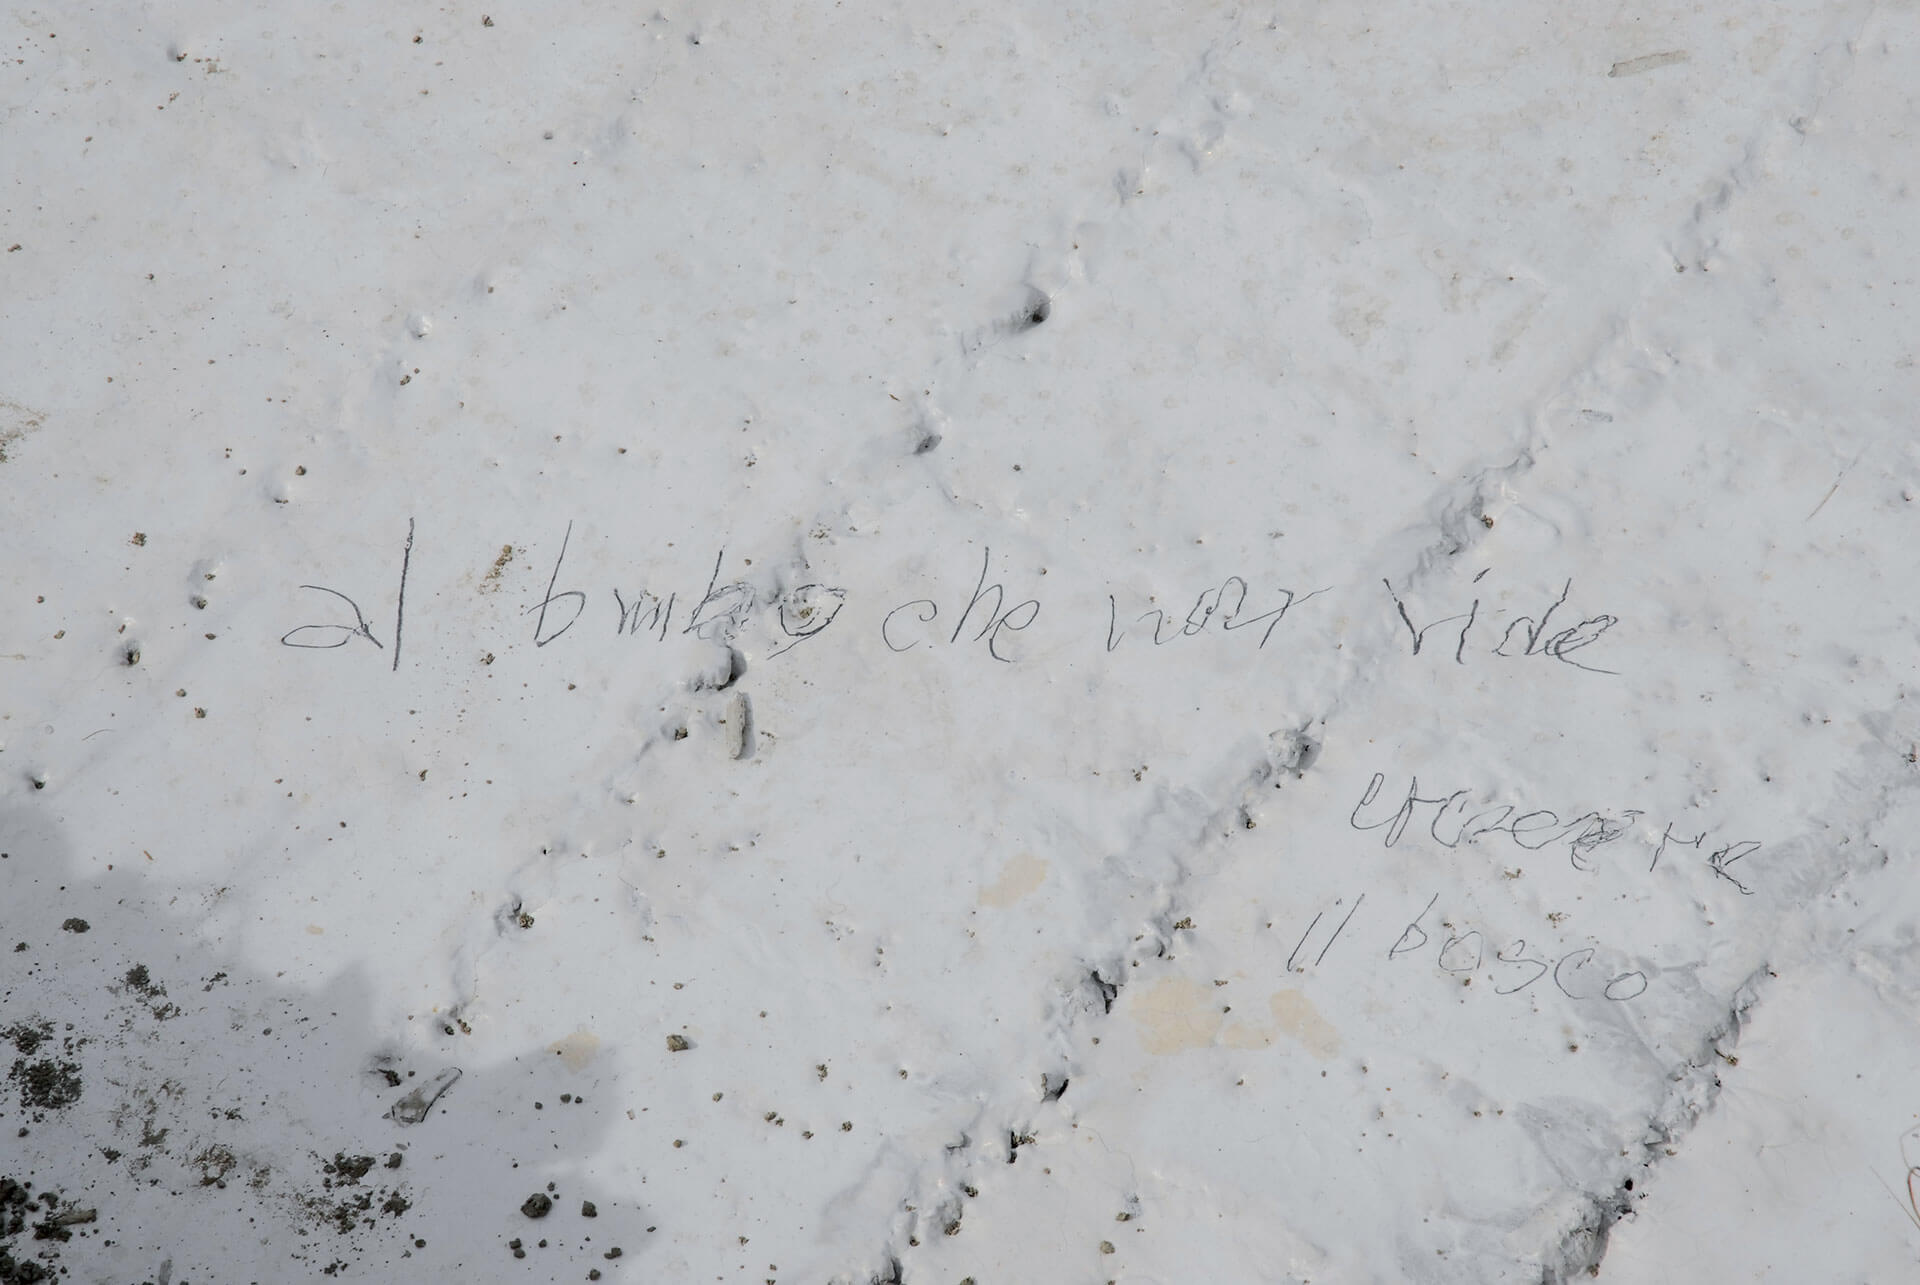 al bimbo che non vide
crescere
il bosco